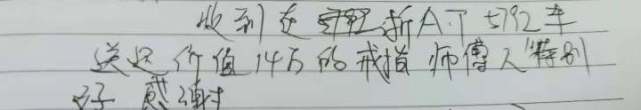 收到在 新AT5792车
送还价值14万的戒指 师傅人特别
好 感谢